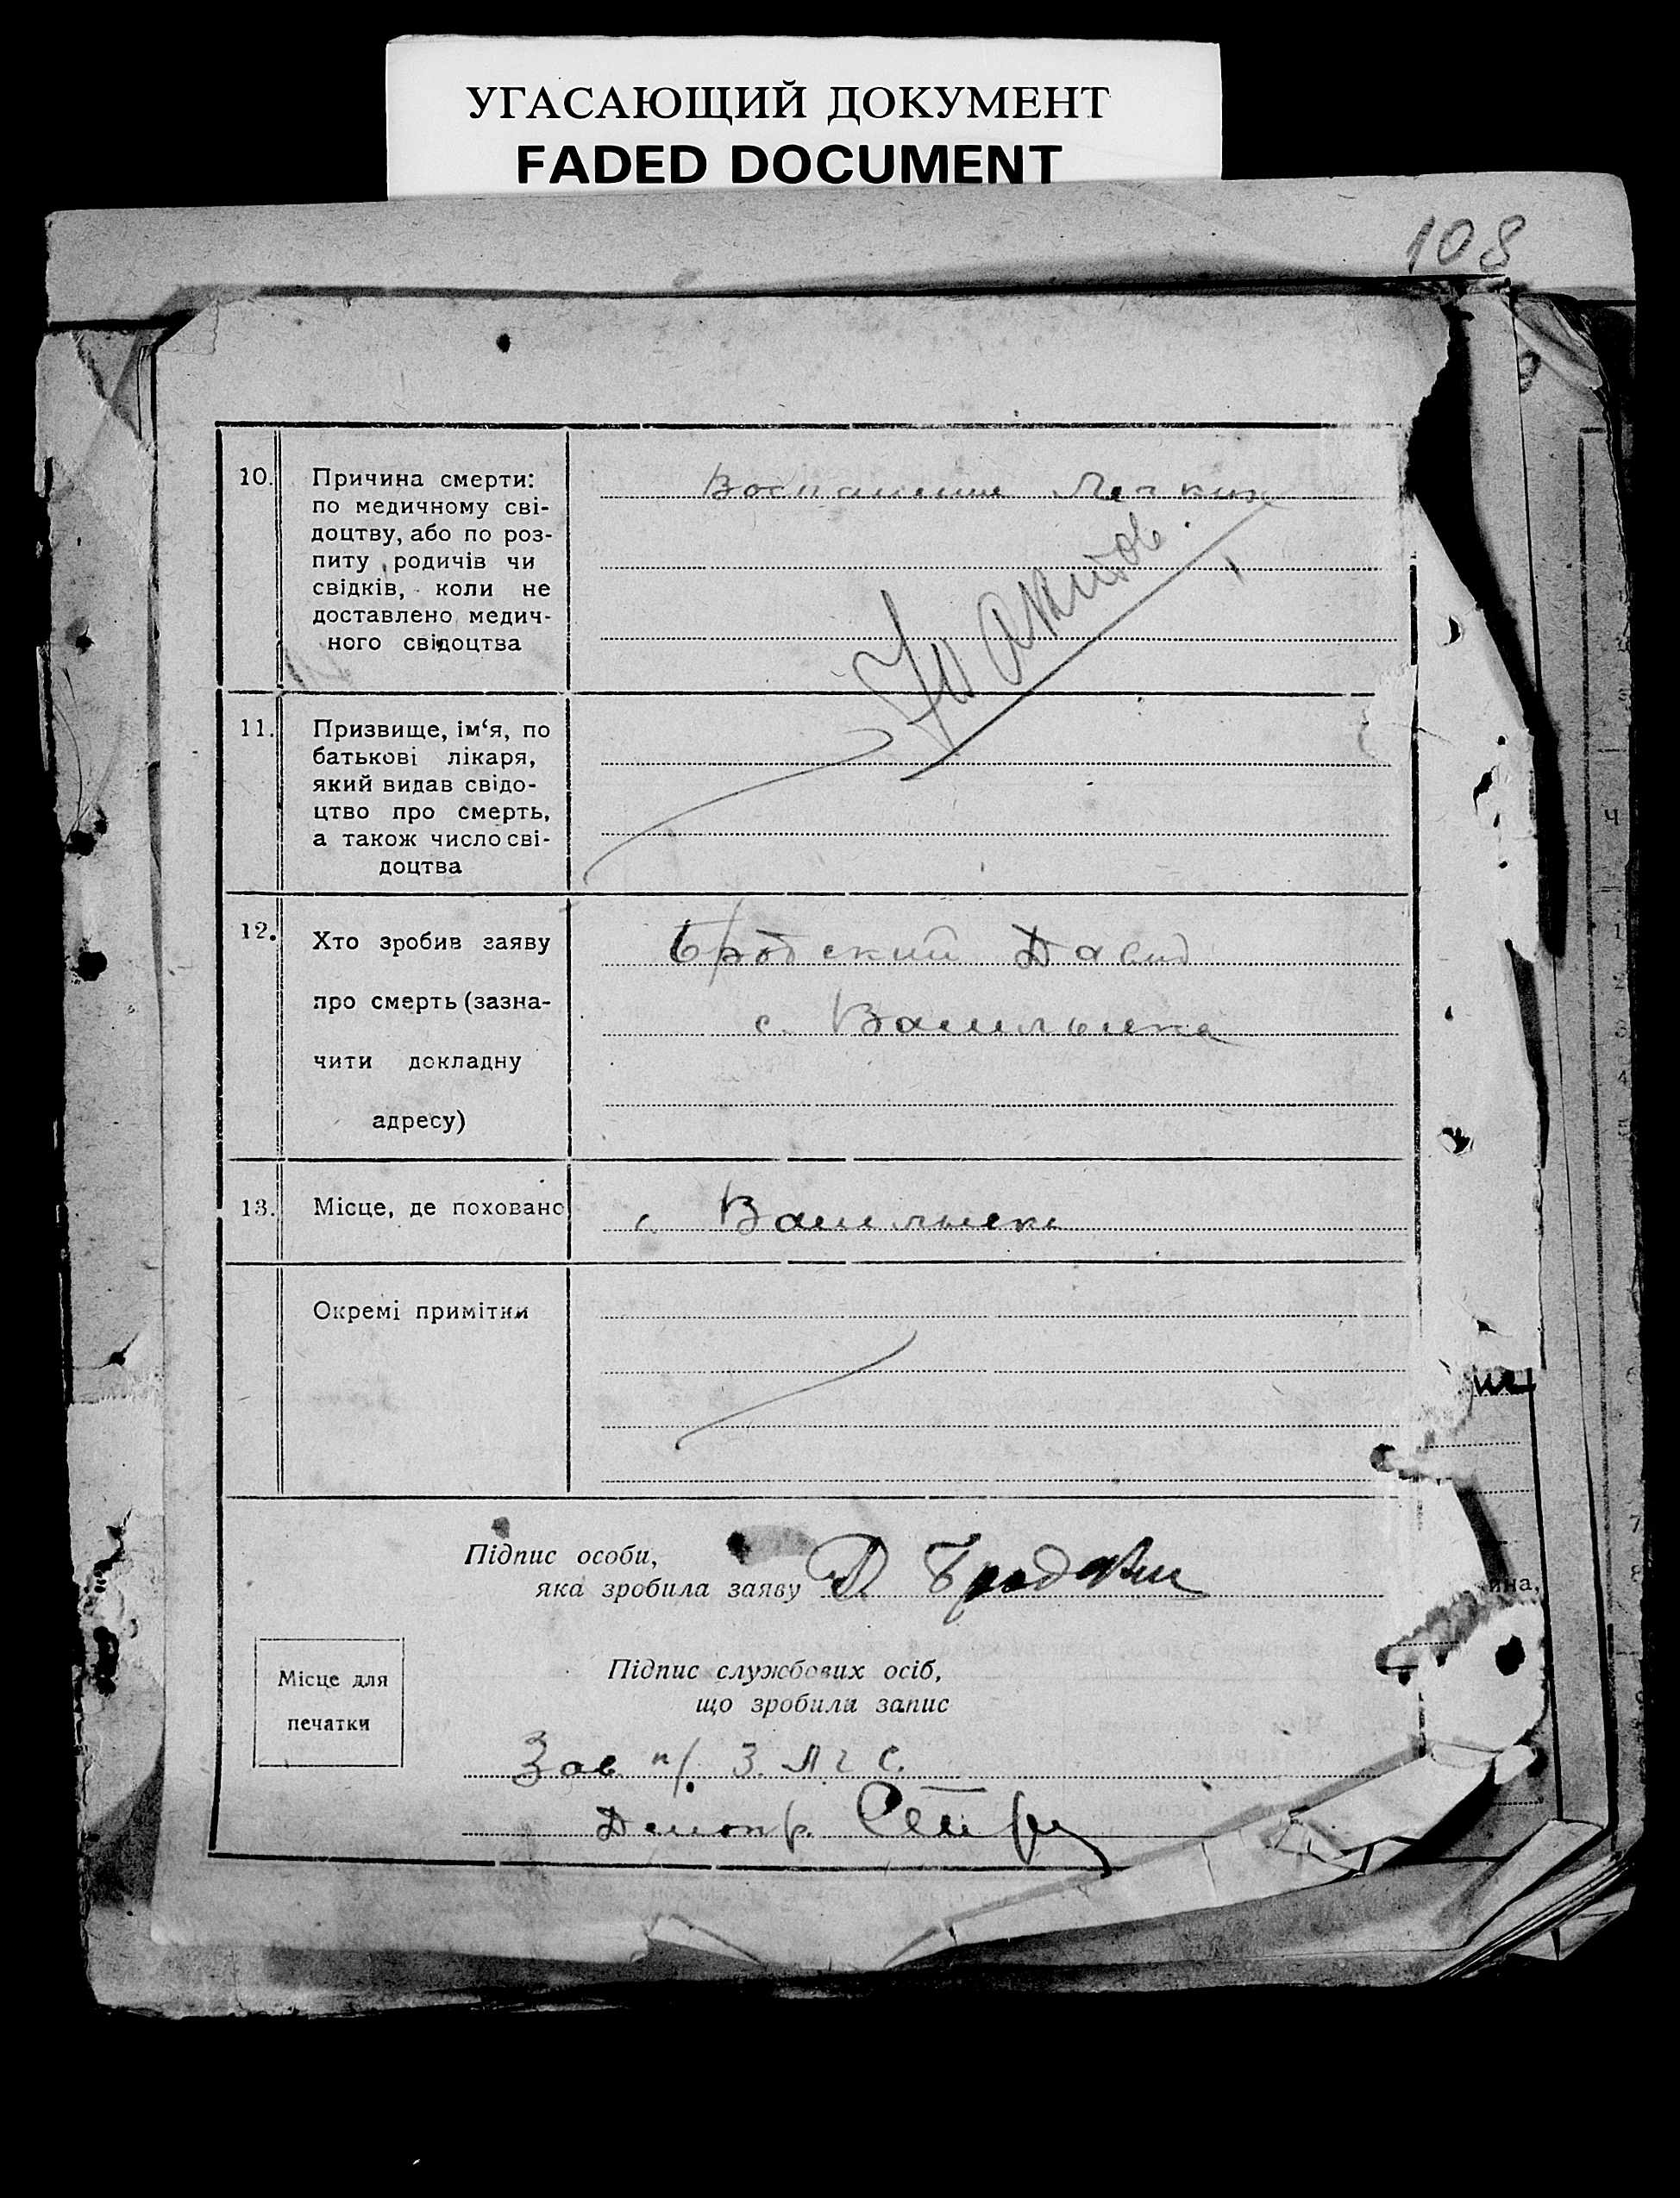 УГАСАЮЩИЙ ДОКУМЕНТ
FADED DOCUMENT
108
10.
Причина смерти:
по медичному сві-
доцтву, або по роз-
питу родичів чи
свідків, коли не
доставлено медич-
ного свідоцтва
Воспаление Легких
11.
Призвище, ім‘я, по
батькові лікаря,
який видав свідо-
цтво про смерть,
а також число сві-
доцтва
12.
Хто зробив заяву
про смерть (зазна-
чити докладну
адресу)
Бродский Давид
с.
13.
Місце, де поховано
с.
Окремі примітки
Підпис особи,
яка зробила заяву
Д Бродский
Місце для
печатки
Підпис службових осіб,
що зробили запис
Зав. п/